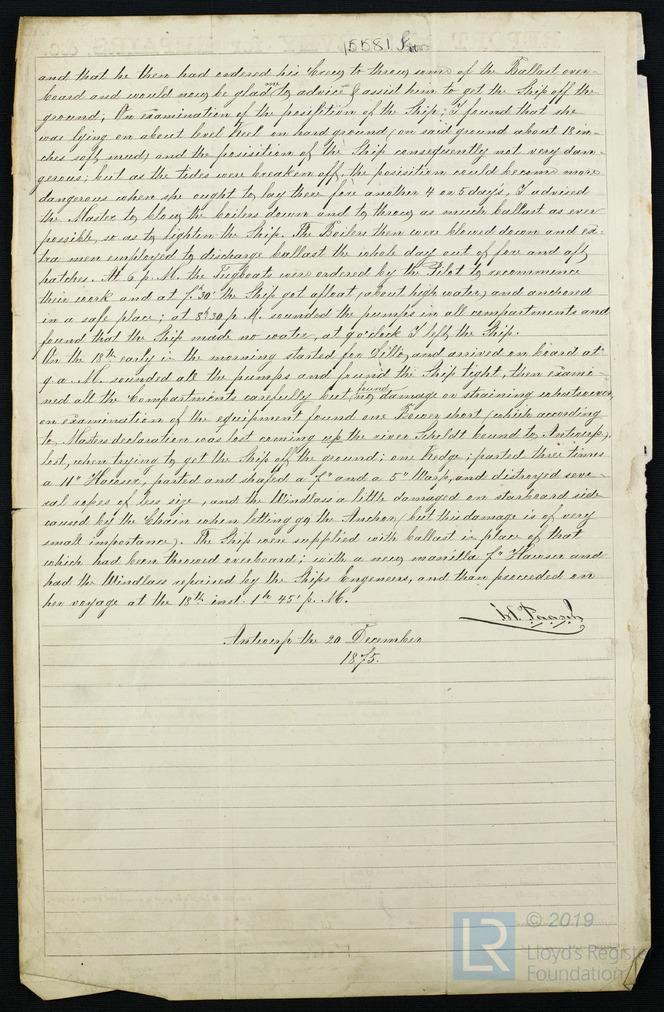 15581 Iron
and that he then had ordered his Crew to throw some of the Ballast over-
board and would now be glad me to advise & assist him to get the Ship off the
ground; On examination of the posistion of the Ship; I found that she
was lying on about level keel on hard ground, on said ground about 18 in-
ches soft mud, and the posisition of the Ship consequently not very dan-
gerous; but as the tides were breaken off, the posisition could become more
dangerous where she ought to lay there for another 4 or 5 days, I advised
the Master to blow the boilers down and to throw as much ballast as ever
possible, so as to lighten the Ship. The Boilers then were blowed down and ex-
tra men employed to discharge ballast the whole day out of fore and aft
hatches. At 6 p. M. the Tugboat were ordered by the Pilot to recommence
their work and at 7h 30' the Ship got afloat (about high water) and anchored
in a safe place; at 8h 30 p. M. sounded the pumps in all compartments and
found that the Ship made no water, at 9 o'clock I left the Ship.
On the 18th early in the morning started for Lillo, and arrived on board at
9 a. M. sounded all the pumps and found the Ship tight, then exami-
ned all the Compartments carefully but found no damage or straining whatsoever,
on examination of the equipment found one Bower short (which according
to Masters declaration was lost coming up the river Scheldt bound to Antwerp),
lost, when trying to get the Ship off the ground; one Kedge; parted three times
a 11" Hawser, parted and shafed a 7" and a 5" Warp, and distroyed seve-
ral ropes of less size, and the Windlass a little damaged on starboard side
caused by the Chain when letting go the Anchor (but this damage is of very
small importance). The Ship were supplied with ballast in place of that
which had been throwed overboard; with a new manilla 7" Hawser and
had the Windlass repaired by the Ships Engeneers, and than proceeded on
her voyage at the 18th inst. 1h 45' p. M.
Antwerp the 20 December
1875.
LR © 2019
Lloyd's Register
Foundation